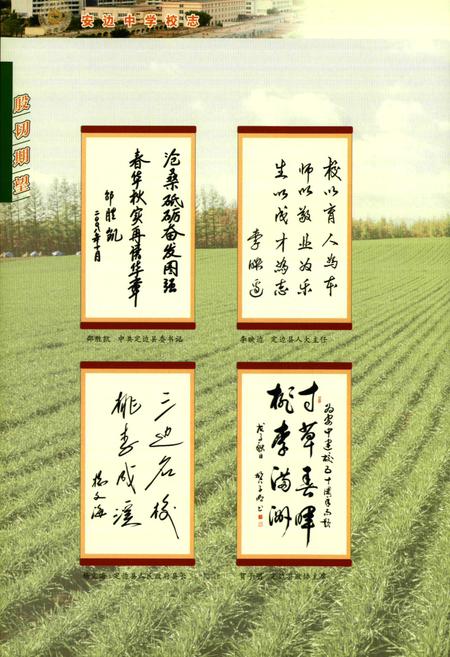 安边中学校志
殷切期望
沧桑砥砺奋发图强
春华秋实再谱华章
邵胜凯
二〇〇八年十月
邵胜凯 中共定边县委书记
校以育人为本
师以敬业为乐
生以成才为志
李映边
李映边 定边县人大主任
三边名校
桃李成溪
杨文海
杨文海 定边县人民政府县长
为安中建校五十周年而题
寸草春晖
桃李满洲
戊子秋日
定边县政协主席